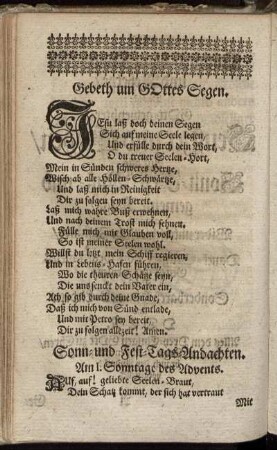 Gebeth um GOttes Segen.
JEsu laß doch deinen Segen
Sich auf meine Seele legen,
Und erfülle durch dein Wort,
O du treuer Seelen-Hort,
Mein in Sünden schweres Hertze,
Wisch ab alle Höllen-Schwärtze,
Und laß mich in Reinigkeit
Dir zu folgen seyn bereit.
Laß mich wahre Buß erwehnen,
Und nach deinem Trost mich sehnen,
Fülle mich mit Glauben voll,
So ist meiner Seelen wohl.
Willst du jetzt mein Schiff regieren,
Und in Lebens-Hafen führen,
Wo die theuren Schätze seyn,
Die uns schenckt dein Vater ein,
Ach so gib durch deine Gnade,
Daß ich mich von Sünd entlade,
Und mit Petro sey bereit
Dir zu folgen allezeit! Amen.
Sonn- und Fest-Tags Andachten.
Am 1. Sonntage des Advents.
AUf, auf! geliebte Seelen-Braut,
Dein Schatz kommt, der sich hat vertraut
Mit